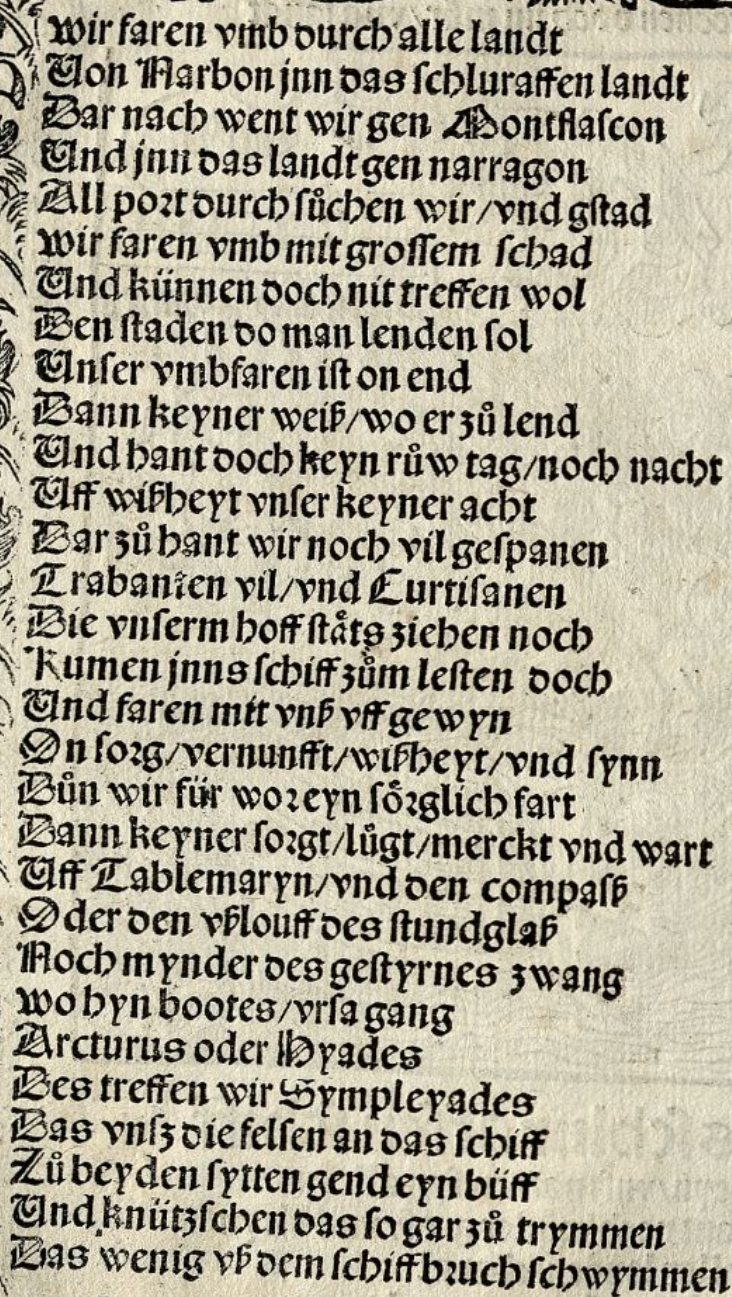 wir faren vmb durch alle landt
Von Narbon jnn das schluraffen landt
Dar nach went wir gen Montflascon
Und jnn das landt gen narragon
All port durch sůchen wir/vnd gstad
wir faren vmb mit grossem schad
Und künnen doch nit treffen wol
Den staden do man lenden sol
Unser vmbfaren ist on end
Dann keyner weiß/wo er zů lend
Und hant doch keyn růw tag/noch nacht
Uff wißheyt vnser keyner acht
Dar zů hant wir noch vil gespanen
Trabanten vil/vnd Curtisanen
Die vnserm hoffståts ziehen noch
Kumen jnns schiff zům lesten doch
Und faren mit vnß vff gewyn
On sorg/vernunfft/wißheyt/vnd synn
Důn wir für wor eyn sörglich fart
Dann keyner sorgt/lůgt/merckt vnd wart
Uff Tablemaryn/vnd den compasß
Oder den vßlouff des stundglaß
Noch mynder des gestyrnes zwang
wo hyn bootes/vrsa gang
Arcturus oder Hyades
Des treffen wir Sympleyades
Das vnsz die felsen an das schiff
Zů beyden sytten gend eyn büff
Und knützschen das so gar zů trymmen
Das wenig vß dem schiffbruch schwymmen